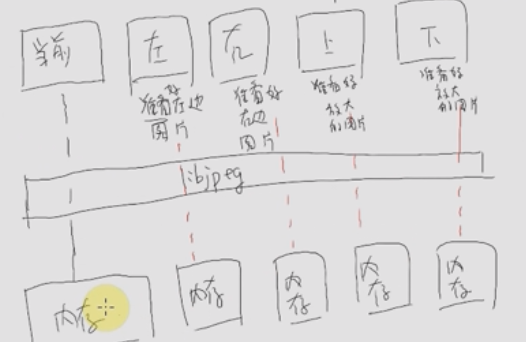 当前
左
右
上
下
准备好
左边
图片
准备好
右边
图片
准备好
放大
的图片
准备好
放大
的图片
libjpeg
内存
内存
内存
内存
内存